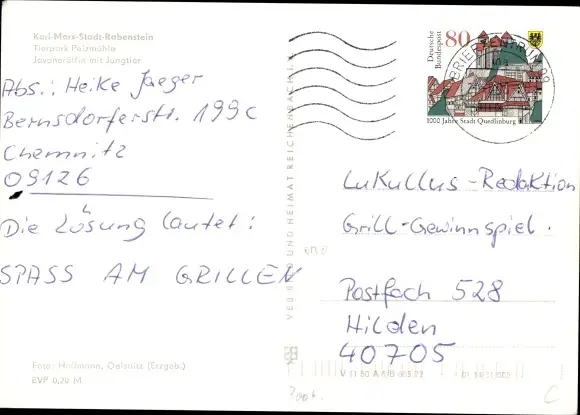 Karl-Marx-Stadt-Rabenstein
Tierpark Pelzmühle
Javaneräffin mit Jungtier
Abs.: Heike Jaeger
Bernsdorferstr. 199c
Chemnitz
09126
Die Lösung lautet:
SPASS AM GRILLEN
Foto: Hoffmann, Oelsnitz (Erzgeb.)
EVP 0,20 M
VEB BILD UND HEIMAT REICHENBACH
Deutsche
Bundespost
80
1000 Jahre Stadt Quedlinburg
BRIEFZENTRUM
Lukullus-Redaktion
Grill-Gewinnspiel.
Postfach 528
Hilden
40705